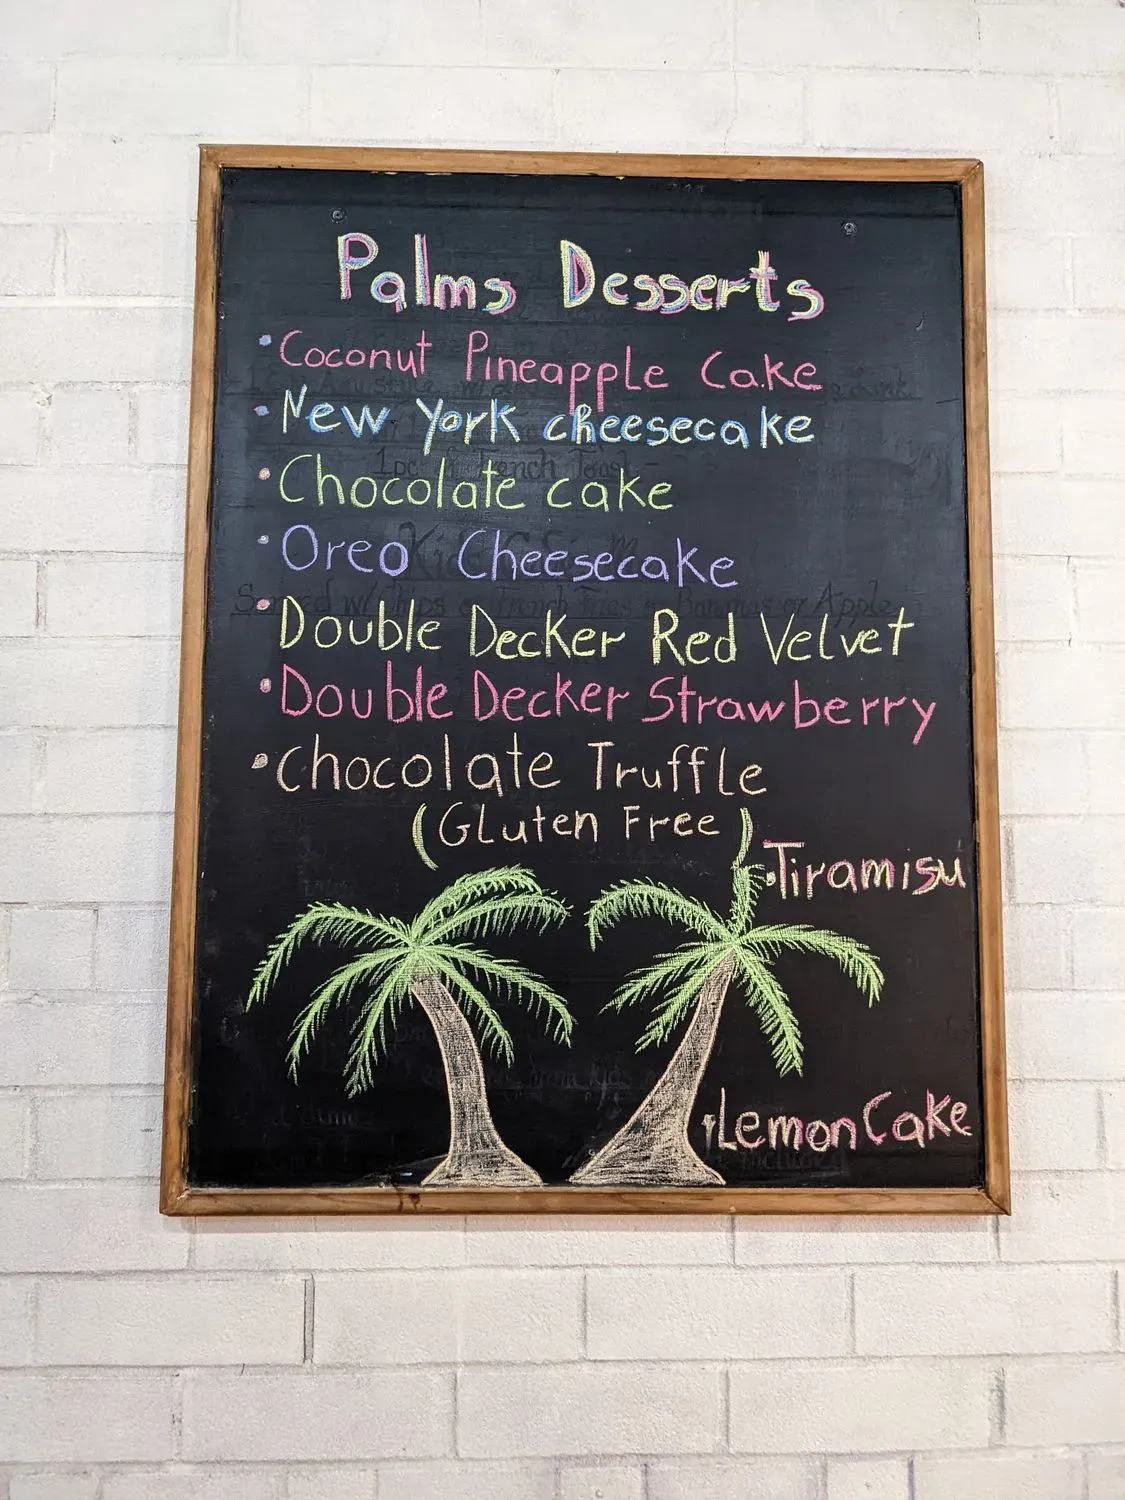 Palms Desserts
• Coconut Pineapple Cake
• New York cheesecake
• Chocolate cake
• Oreo Cheesecake
• Double Decker Red Velvet
• Double Decker Strawberry
• Chocolate Truffle
(Gluten Free)
• Tiramisu
• Lemon Cake